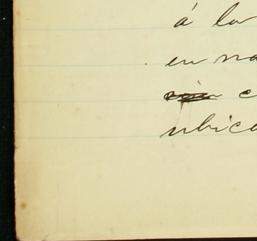 á la
en na
c
ubica